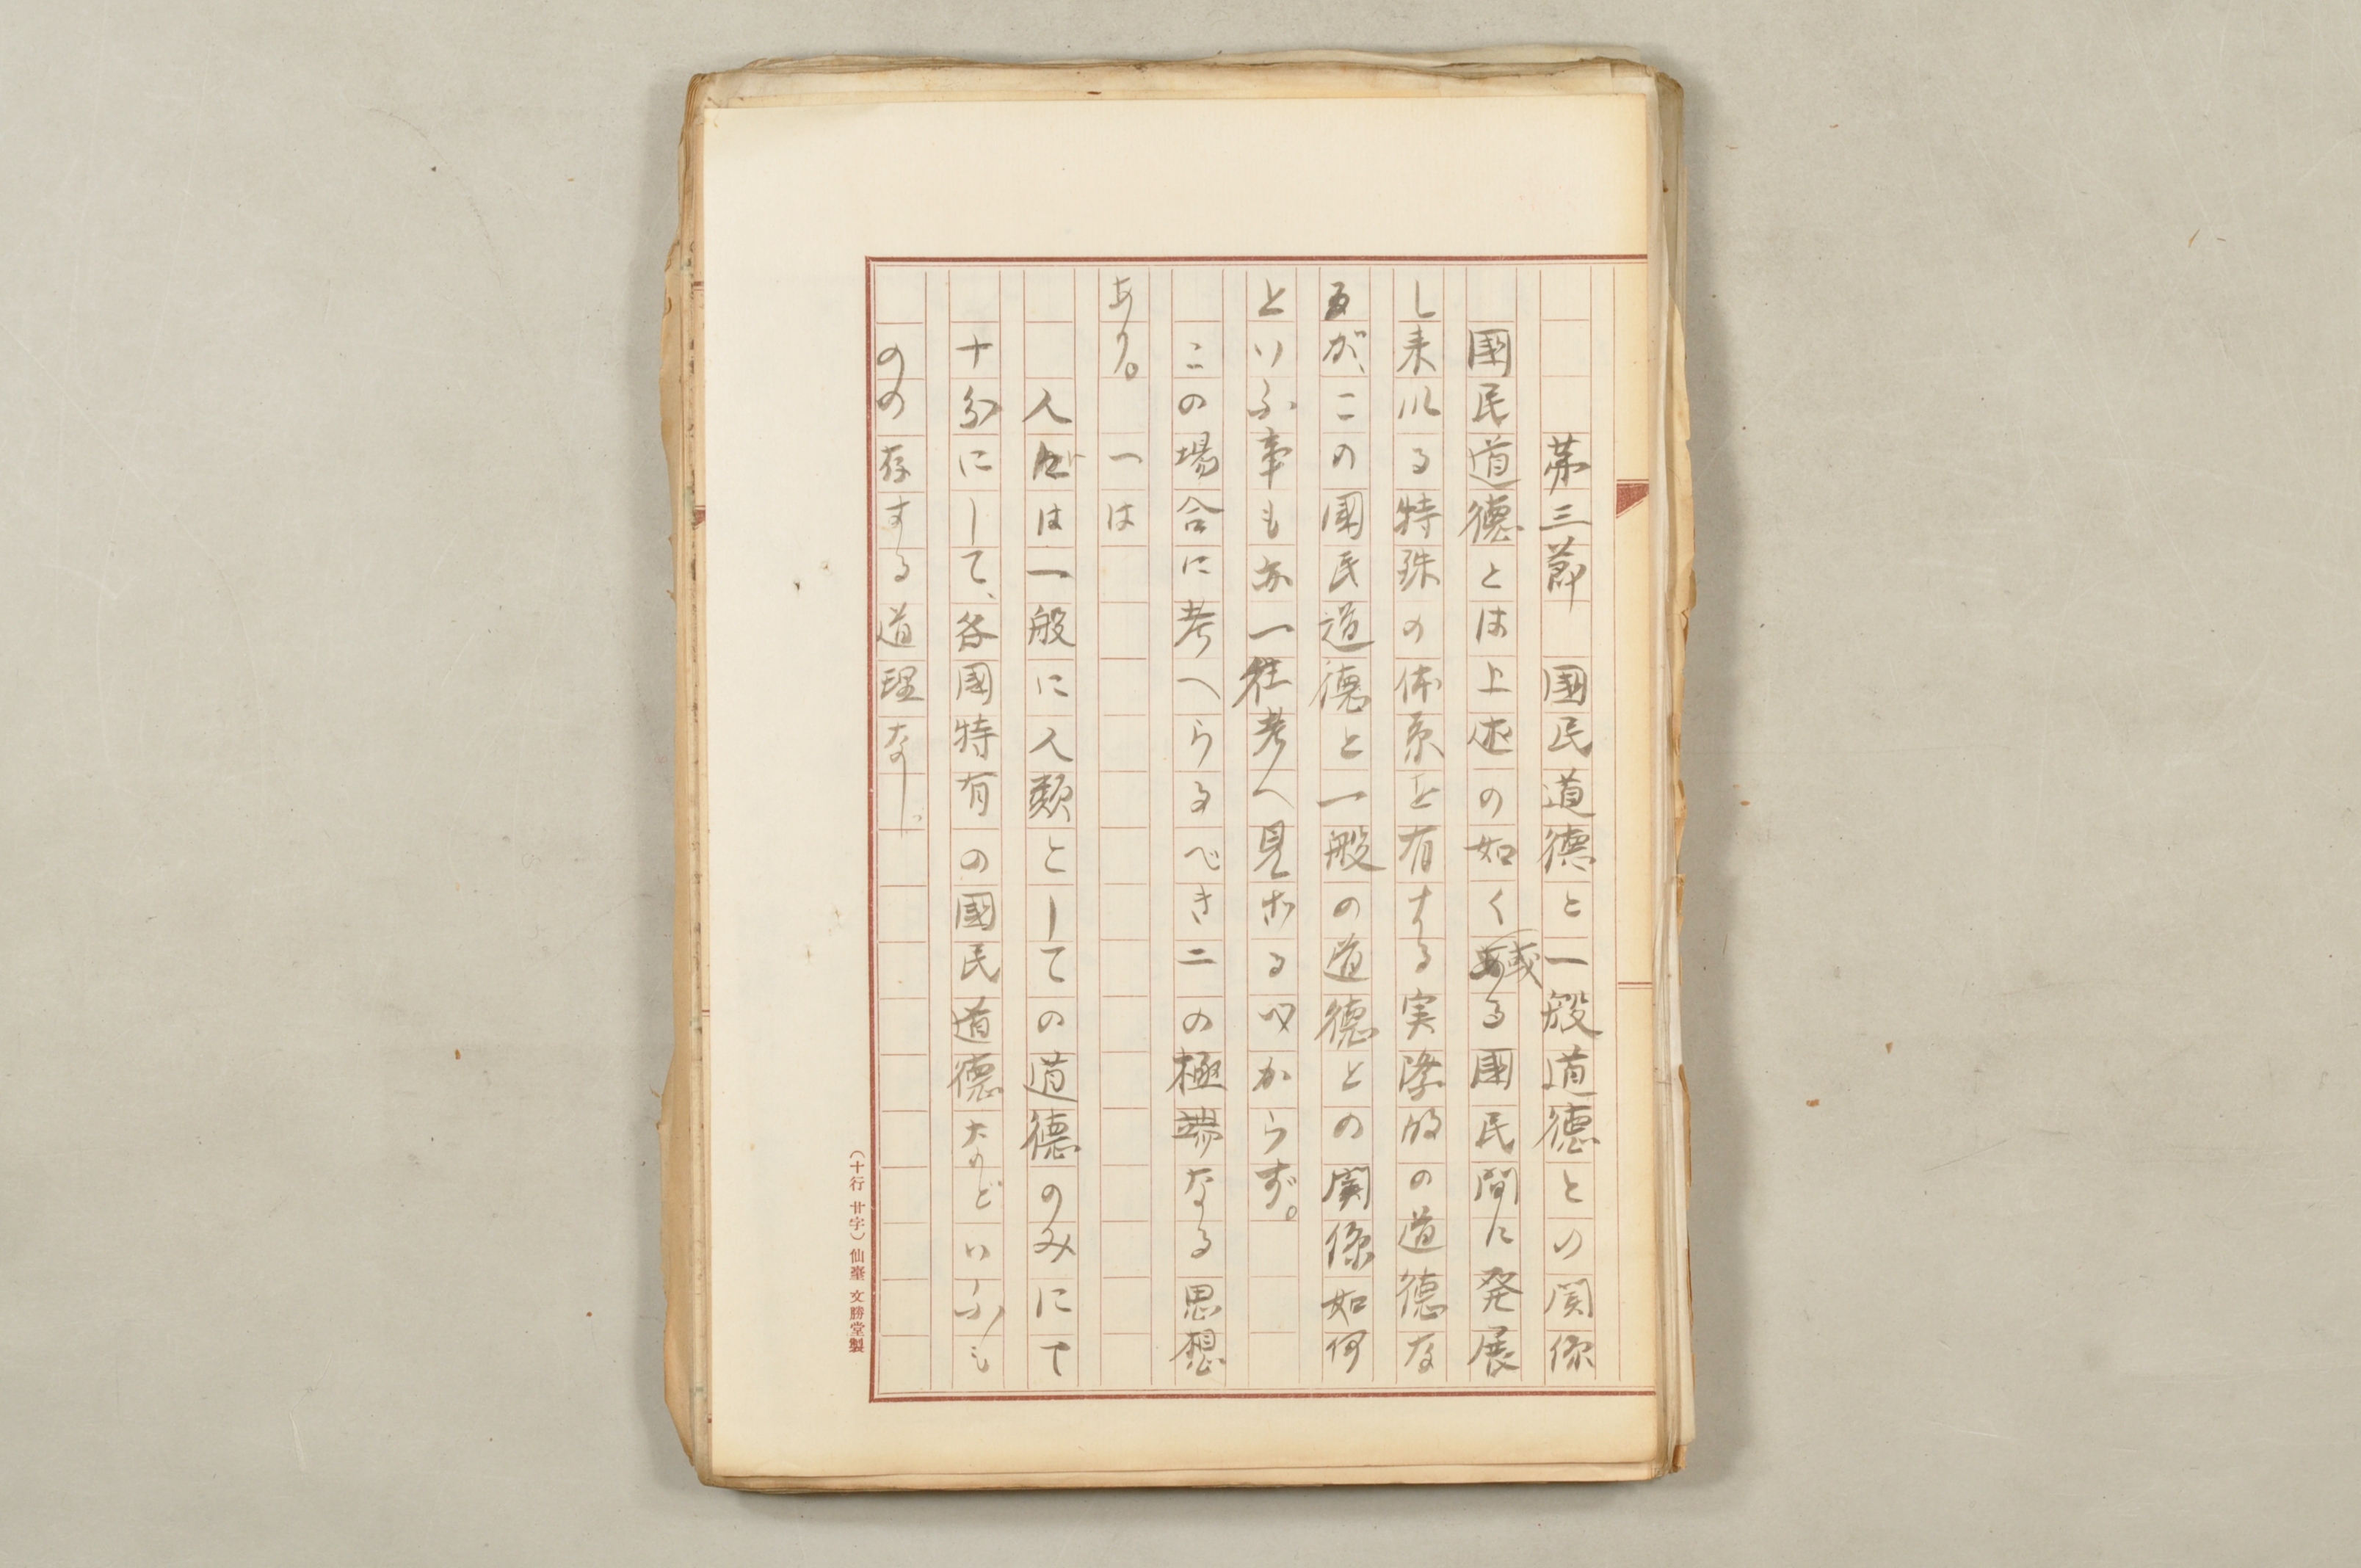 第三節　國民道德と一般道德との関係
國民道德とは上述の如く或る國民間に発展
し来れる特殊の体系を有する実際的の道德な
るが、この國民道德と一般の道德との関係如何
といふ事も亦一往考へ見ざるべからず。
この場合に考へらるべき二の極端なる思想
あり。一は
人には一般に人類としての道德のみにて
十分にして、各國特有の國民道德などいふも
のの存する道理なし。
(十行廿字)仙臺文勝堂製